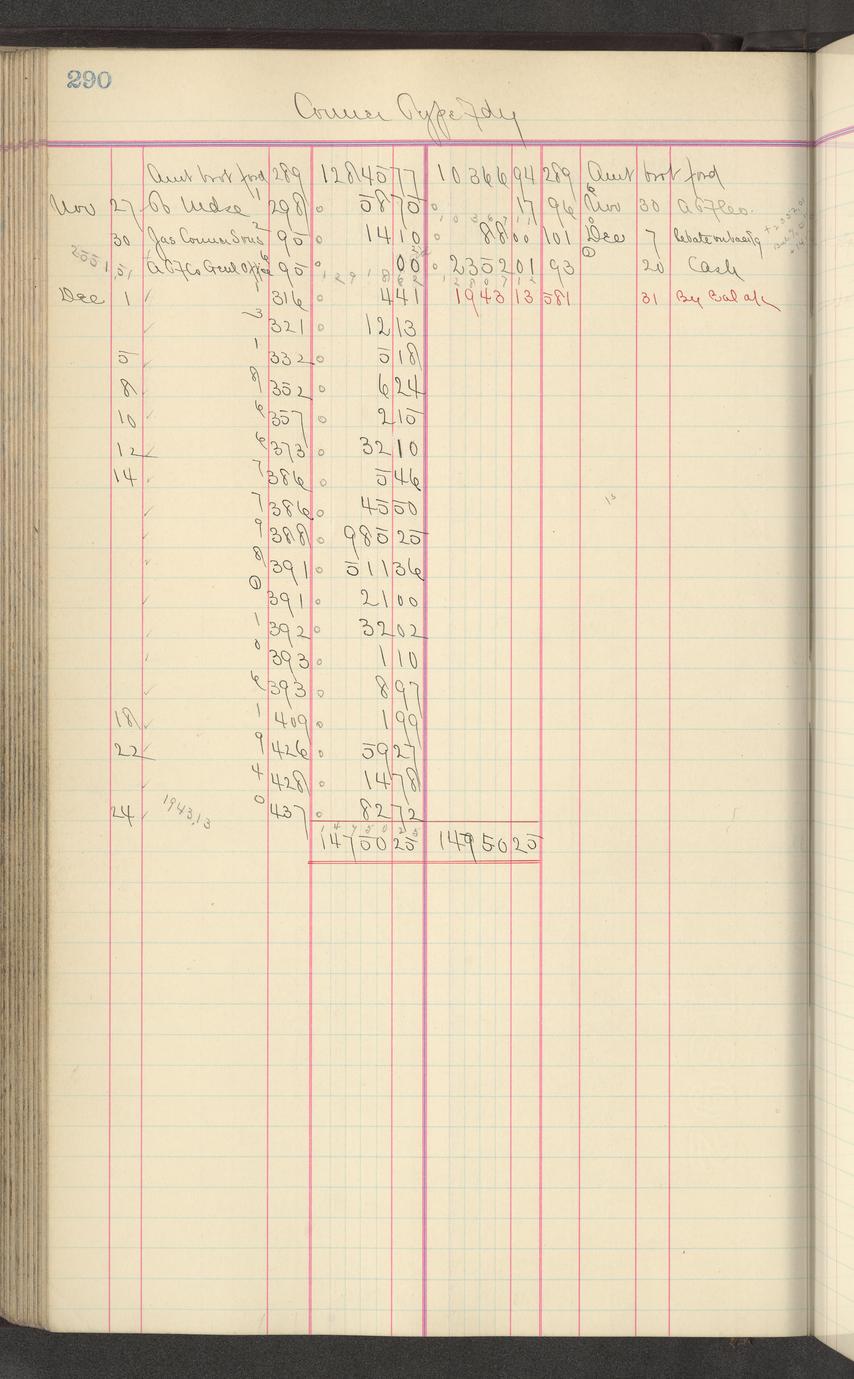 290
Conner Type Fdy
Amt brot ford 289 12845 77 10366 94 289 Amt brot ford
Nov 27 To Mdse 1 298 58 75 17 96 6 Nov 30 ATF Co.
30 Jas Conner Sons 2 95 14 10 88 00 101 0 Dec 7 Rebate on
2551.51 ATF Co Genl Office 6 95 00 2352 01 93 1 20 Cash
12918 62 12807 12
Dec 1 ✓ 1 316 4 41 1943 13 581 31 By Bal a/c
✓ 3 321 12 13
5 ✓ 1 332 5 18
8 ✓ 8 352 6 24
10 ✓ 6 357 2 15
12 ✓ 6 373 32 10
14 ✓ 7 386 5 46
✓ 7 386 45 50
✓ 9 388 985 25
✓ 8 391 511 36
✓ 1 391 21 00
✓ 1 392 32 02
✓ 0 393 1 10
✓ 6 393 8 97
18 ✓ 1 409 1 99
22 ✓ 9 426 59 27
✓ 4 428 14 78
24 ✓ 1943.13 0 437 82 72
14750 25
14750 25 14750 25